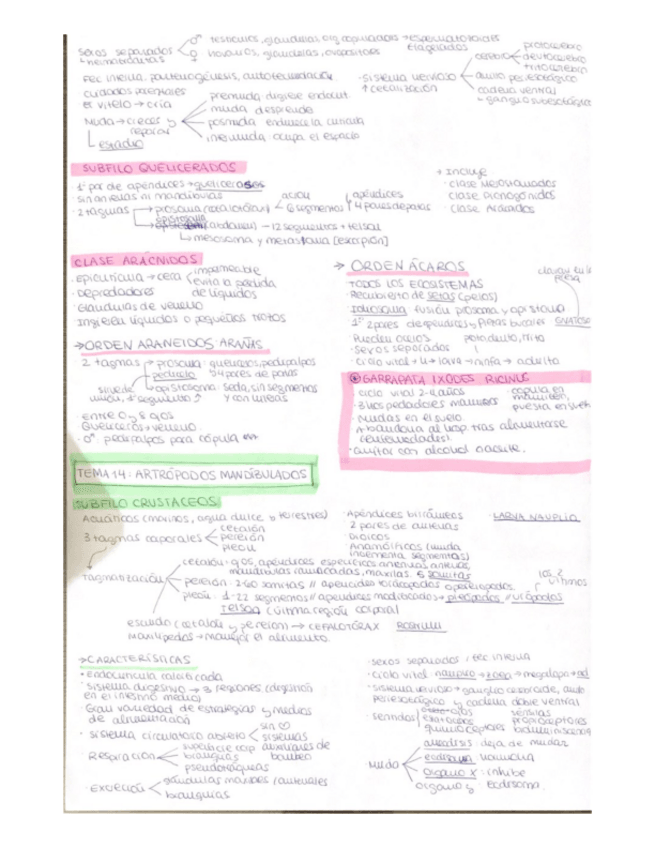 sexos separados
♂ testículos, glándulas, org copuladores → espermatozoides flagelados
→ hembrabitas
♀ ovarios, glándulas, ovopositores
Fec interna, partenogénesis, autofecundación
cuidados parentales
el vitelo → cría
Muda → crecer y reparar
estadio
premuda: digiere endocut.
muda: desprende
posmuda: endurece la cutícula
intermuda: ocupa el espacio
· sistema nervioso
↑ cefalización
cerebro
protocerebro
deutocerebro
tritocerebro
anillo periesofágico
cadena ventral
↳ ganglio subesofágico
SUBFILO QUELICERADOS
· 1er par de apéndices → quelíceros
· sin antenas ni mandíbulas
· 2 tagmas
prosoma (cefalotórax)
acron
6 segmentos
apéndices
4 pares de patas
opistosoma (abdomen) → 12 segmentos + telson
↳ mesosoma y metasoma [escorpión]
→ Incluye
· clase Merostomados
· clase Picnogónidos
· clase Arácnidos
CLASE ARÁCNIDOS
· epicutícula → cera
impermeable
evita la pérdida de líquidos
· Depredadores
· Glándulas de veneno
Ingieren líquidos o pequeños trozos
→ ORDEN ARANEIDOS ARAÑAS
2 tagmas
prosoma: quelíceros, pedipalpos
pedicelo
4 pares de patas
opistosoma: seda, sin segmentos
y con hileras
unión, 1er segmento
· entre 0 y 8 ojos
quelíceros → veneno
· ♂ pedipalpos para cópula
→ ORDEN ÁCAROS
TODOS LOS ECOSISTEMAS
· Recubierto de setas (pelos)
Idiosoma fusión prosoma y opistosoma
1os 2 pares de apéndices y piezas bucales GNATOSOMA
Pueden ocelos
· sexos separados
· ciclo vital → H → larva → ninfa → adulto
GARRAPATA IXODES RICINUS
· ciclo vital 2-4 años
· 3 hospedadores mamíferos
· Mudas en el suelo
· Abandona al hosp. tras alimentarse
(enfermedades)
· Quitar con alcohol o aceite.
TEMA 14: ARTRÓPODOS MANDIBULADOS
SUBFILO CRUSTÁCEOS
Acuáticos (marinos, agua dulce o terrestres)
3 tagmas corporales
cefalón
pereion
pleon
· Apéndices birrámeos
2 pares de antenas
· Dioicos
Anamórficos (muda incrementa segmentos)
· LARVA NAUPLIO
Tagmatización
cefalón: ojos, apéndices específicos antenas, anténulas,
mandíbulas ramificadas, maxilas 5 somitas
pereion: 2-60 somitas // apéndices torácicos o pereiópodos
pleon: 1-22 segmentos // apéndices modificados → pleópodos // urópodos
los 2 últimos
TELSON (última región corporal)
escudo (cefalón y pereion) → CEFALOTÓRAX
ROSTRUM
maxilípedos → manejar el alimento
→ CARACTERÍSTICAS
· endocutícula calcificada
· sistema digestivo → 3 regiones (digestión
en el intestino medio)
· Gran variedad de estrategias y medios
de alimentación
· Sistema circulatorio abierto
sin ♡
sistemas auxiliares de bombeo
· Respiración
superficie corp
branquias
pseudotráqueas
· excreción
glándulas maxilares / antenales
branquias
· sexos separados, fec interna
· ciclo vital: nauplio → zoea → megalopa → ad
· sistema nervioso → ganglio cerebroide, anillo
periesofágico y cadena doble ventral
· sentidos
estatocistos
quimioceptores
propioceptores
bioluminiscencia
· Muda
anecdisis: deja de mudar
ecdisona hormona
órgano X: inhibe
órgano y: ecdisona